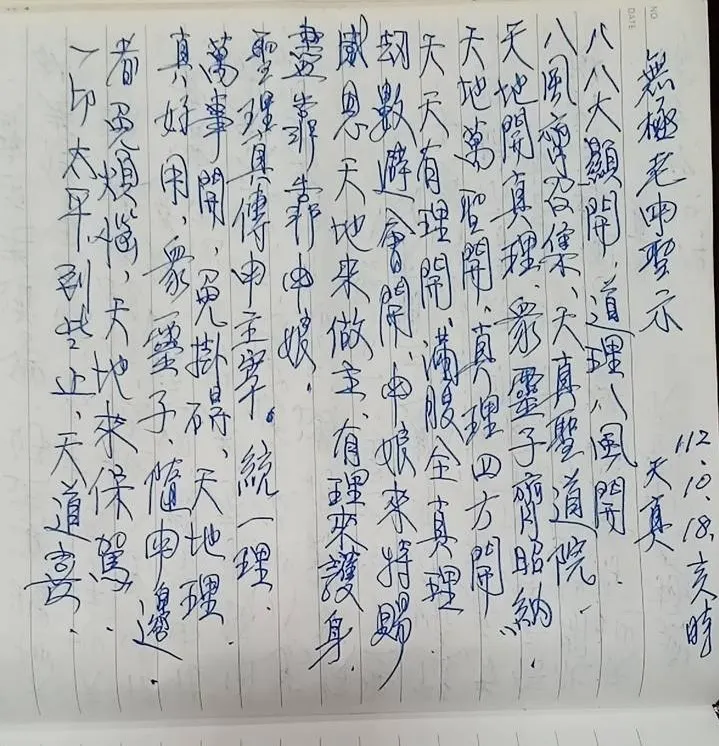 NO.
DATE
112.10.18.亥時
無極老申聖示 天真
八八大顯開、道理八風開
八風齊容集、天真聖道院.
天地開真理、眾靈子齊昭納.
天地萬聖開、真理四方開
天天有理開、滿腹全真理.
劫數避會開、申娘來持賜
感恩天地來做主、有理來護身.
盡靠靠靠申娘.
聖理真傳申主宰。統一理.
萬事開、免掛碍、天地理.
真好用、眾靈子、隨申邊.
者免煩惱、天地來保駕.
一印太平、到些止、天道喜.